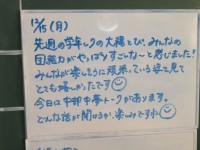 12/15(月)
先週の学年レクの大縄とび、みんなの
団結力がやっぱりすごいな〜と感じました!
みんなが楽しそうに頑張っている姿を見て
とても嬉しかったです
今日は中部中夢トークがあります。
どんな話が聞けるか楽しみですね